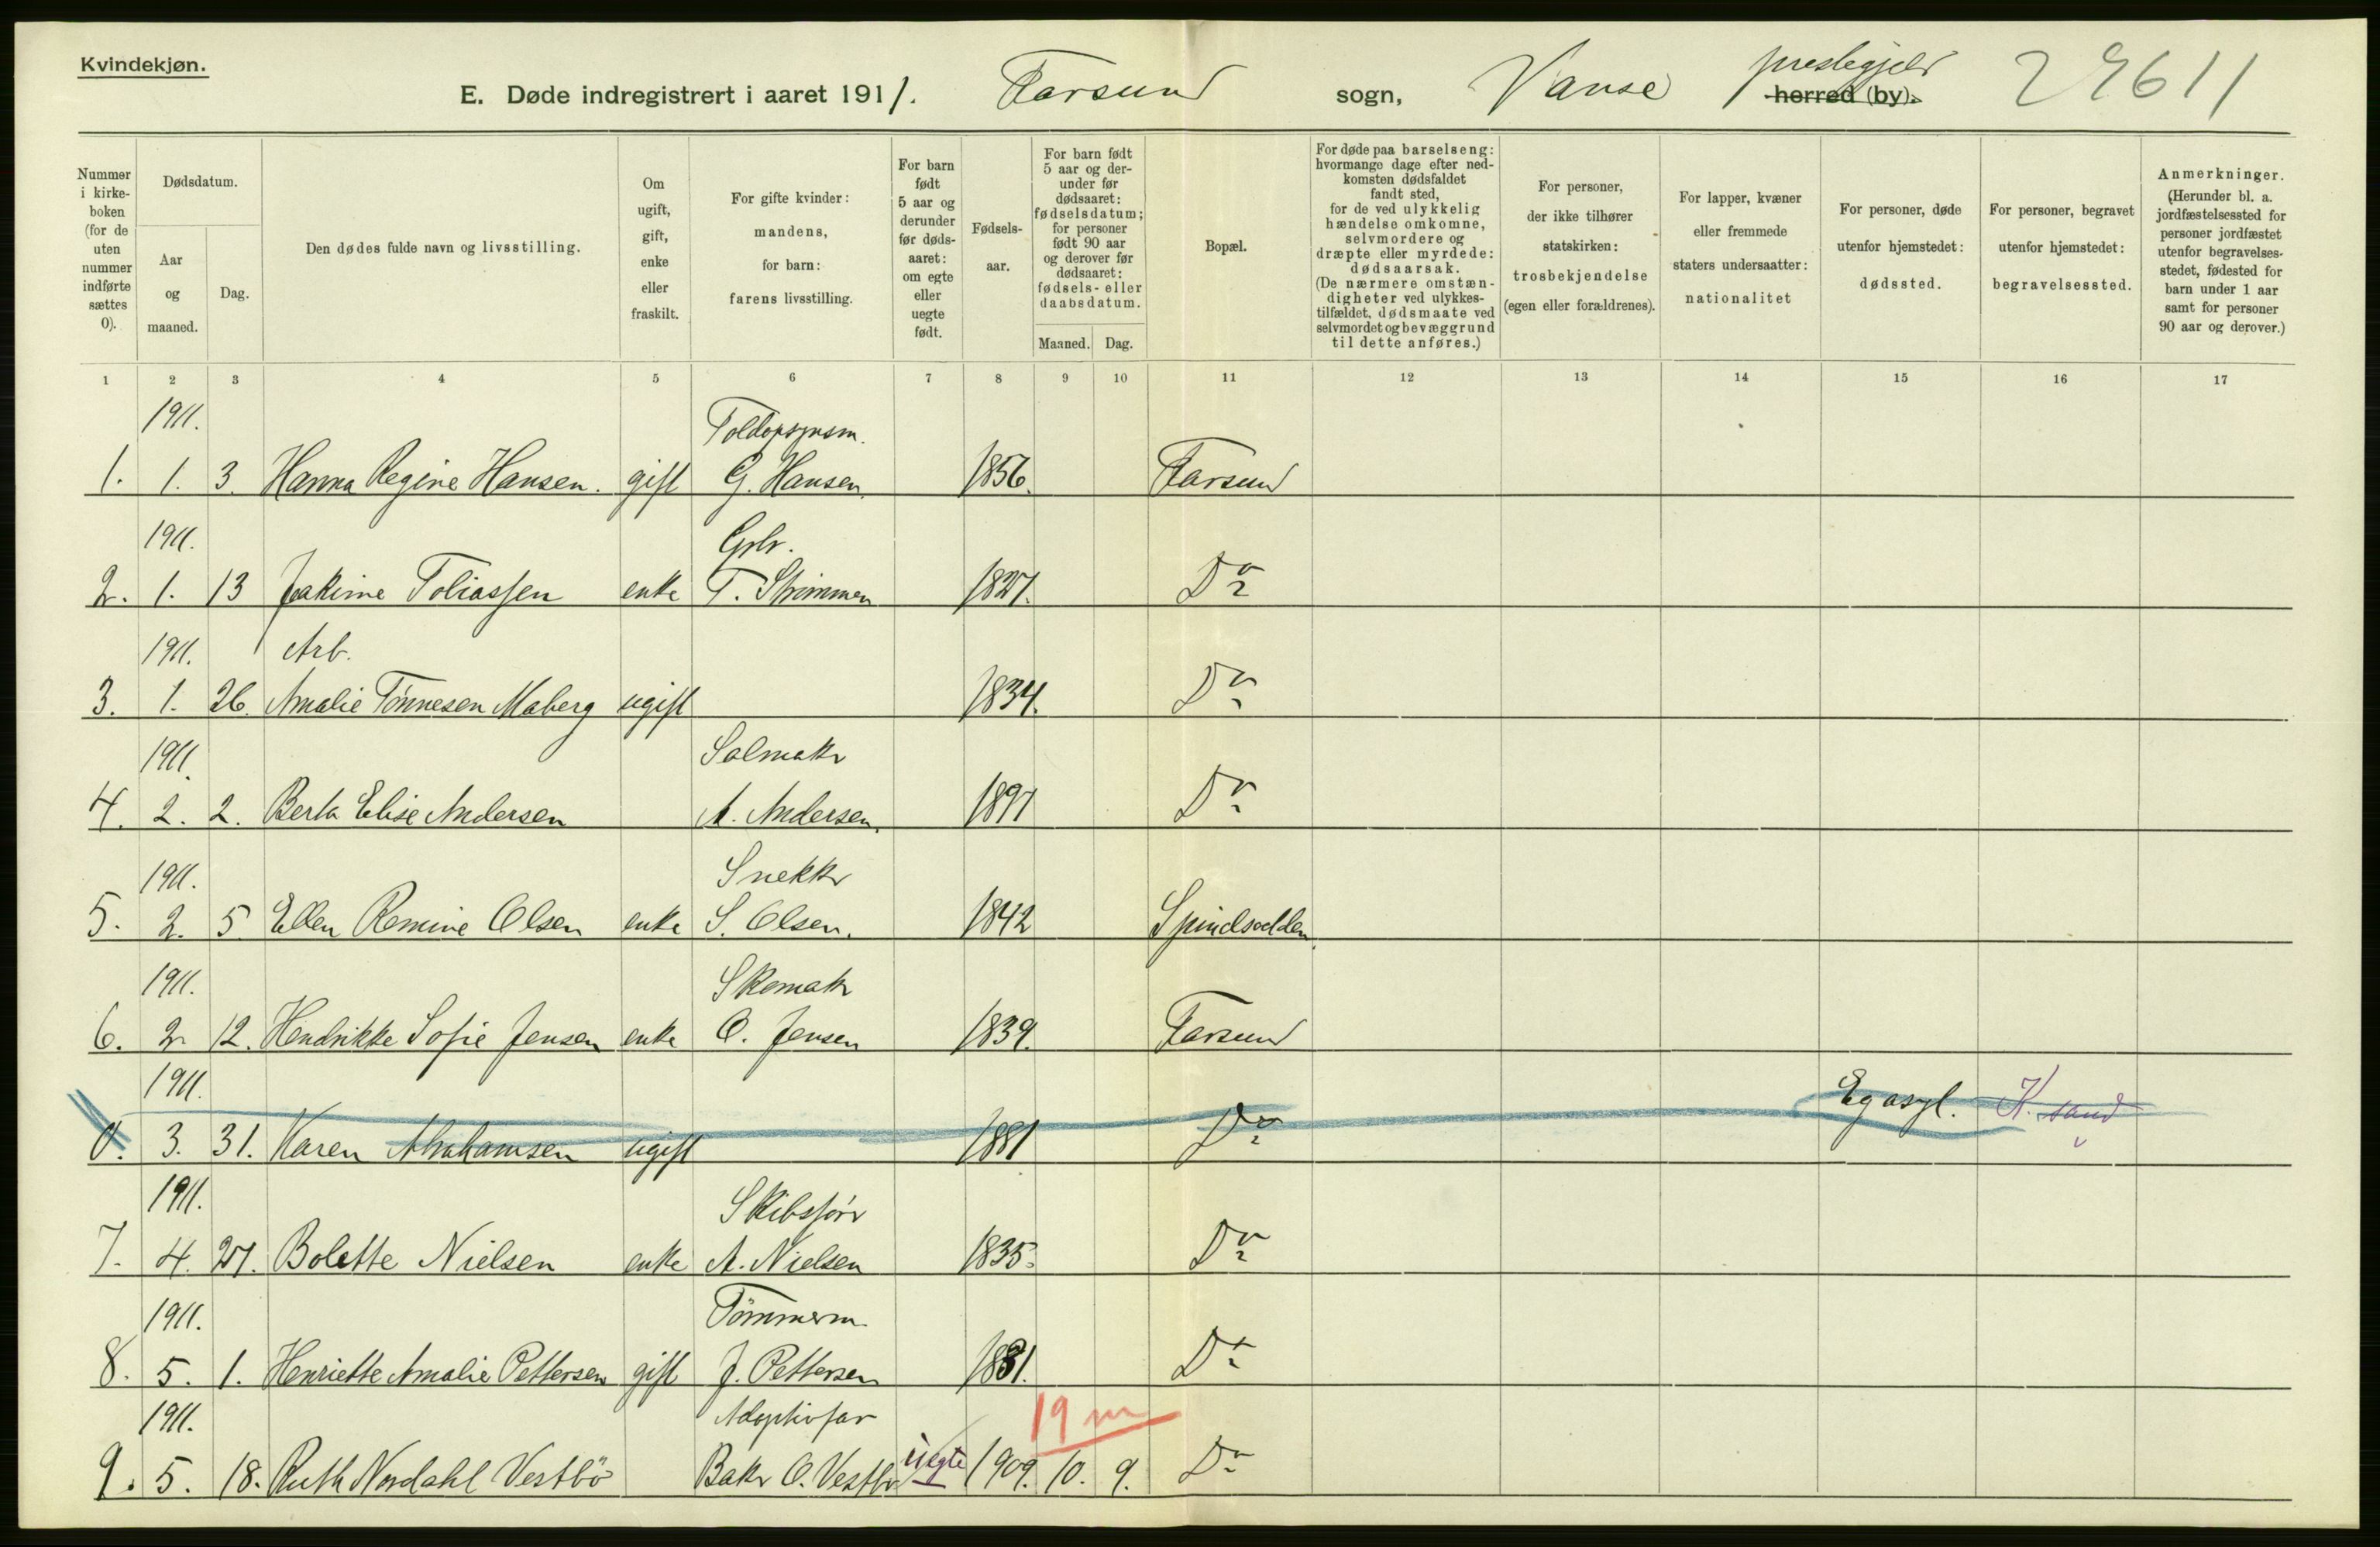 Kvindekjøn.
E. Døde indregistrert i aaret 1911. Farsund sogn, Vanse prestegjeld herred (by). 2611
Nummer i kirkeboken (for de uten nummer indførte sættes 0).
Dødsdatum.
Aar og maaned.
Dag.
Den dødes fulde navn og livsstilling.
Om ugift, gift, enke eller fraskilt.
For gifte kvinder: mandens, for barn: farens livsstilling.
For barn født 5 aar og derunder før dødsaaret: om egte eller uegte født.
Fødselsaar.
For barn født 5 aar og derunder før dødsaaret: fødselsdatum; for personer født 90 aar og derover før dødsaaret: fødsels- eller daabsdatum.
Maaned. Dag.
Bopæl.
For døde paa barselseng: hvormange dage efter nedkomsten dødsfaldet fandt sted, for de ved ulykkelig hændelse omkomne, selvmordere og dræpte eller myrdede: dødsaarsak. (De nærmere omstændigheter ved ulykkestilfældet, dødsmaate ved selvmordet og bevæggrund til dette anføres.)
For personer, der ikke tilhører statskirken: trosbekjendelse (egen eller forældrenes).
For lapper, kvæner eller fremmede staters undersaatter: nationalitet
For personer, døde utenfor hjemstedet: dødssted.
For personer, begravet utenfor hjemstedet: begravelsessted.
Anmerkninger. (Herunder bl. a. jordfæstelsessted for personer jordfæstet utenfor begravelsesstedet, fødested for barn under 1 aar samt for personer 90 aar og derover.)
1 2 3 4 5 6 7 8 9 10 11 12 13 14 15 16 17
1911. Toldopsynsm.
1. 1. 3. Hanna Regine Hansen. gift G. Hansen. 1856. Farsund
1911. Grbr.
2. 1. 13 Jakime Tobiassen enke T. Strømmen 1827. Do
1911. Arb.
3. 1. 26. Amalie Tönnesen Maberg ugift 1834. Do
1911. Salmakr
4. 2. 2. Berta Elise Andersen A. Andersen. 1897 Do
1911. Snekkr
5. 2. 5 Ellen Romine Olsen enke S. Olsen. 1842 Spindsodden.
1911. Skomakr
6. 2 12. Hendrikke Sofie Jensen enke O. Jensen 1839. Farsund
1911.
0. 3. 31. Karen Abrahamsen ugift 1881 Do Eg asyl. K. sand
1911. Skibsförr
7. 4. 27. Bolette Nielsen enke A. Nielsen 1835. Do
1911. Tömmerm.
8. 5. 1. Henriette Amalie Pettersen gift J. Pettersen 1831. Do
1911. Adoptivfar 19 m
9. 5. 18. Ruth Nordahl Vestbö Bakr O. Vestbö uegte 1909. 10. 9. Do